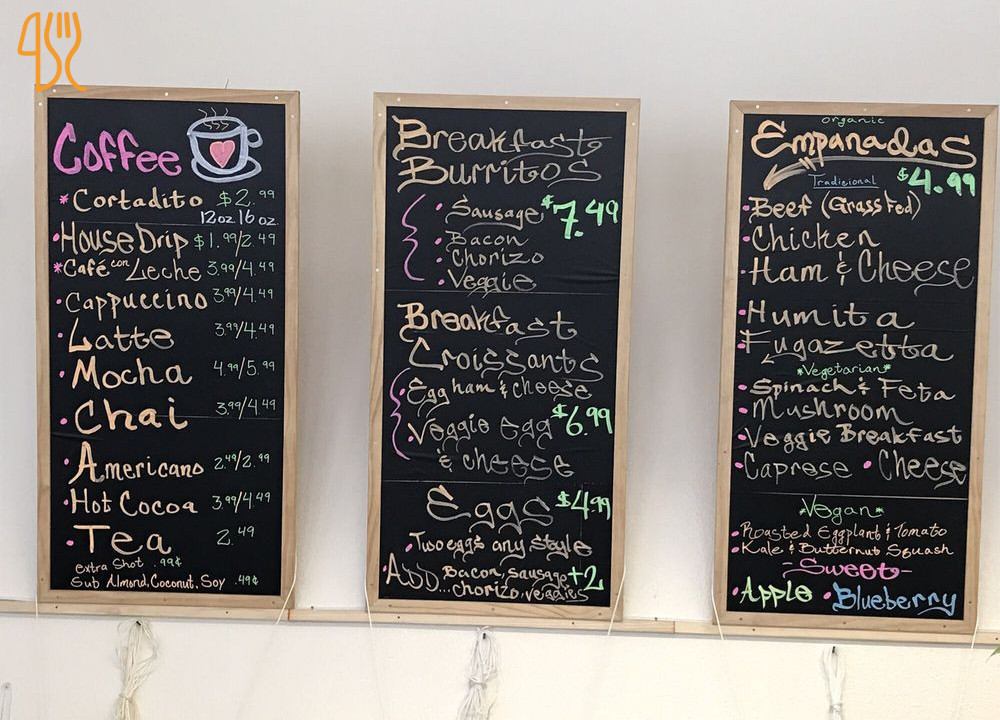 Coffee
* Cortadito $2.99
12oz. 16 oz.
• House Drip $1.99/2.49
* Café con Leche 3.99/4.49
• Cappuccino 3.99/4.49
• Latte 3.99/4.49
• Mocha 4.99/5.99
• Chai 3.99/4.49
• Americano 2.49/2.99
• Hot Cocoa 3.99/4.49
• Tea 2.49
extra Shot .99¢
Sub Almond, Coconut, Soy .49¢
Breakfast
Burritos
• Sausage $7.49
• Bacon
• Chorizo
• Veggie
Breakfast
Croissants
• Egg ham & cheese
• Veggie egg $6.99
& cheese
Eggs $4.99
• Two eggs any style
• ADD... Bacon, Sausage +2
chorizo, veggies
organic
Empanadas
Tradicional $4.99
• Beef (Grass Fed)
• Chicken
• Ham & Cheese
• Humita
• Fugazetta
*Vegetarian*
• Spinach & Feta
• Mushroom
• Veggie Breakfast
• Caprese • Cheese
*Vegan*
• Roasted Eggplant & Tomato
• Kale & Butternut Squash
-Sweet-
• Apple • Blueberry